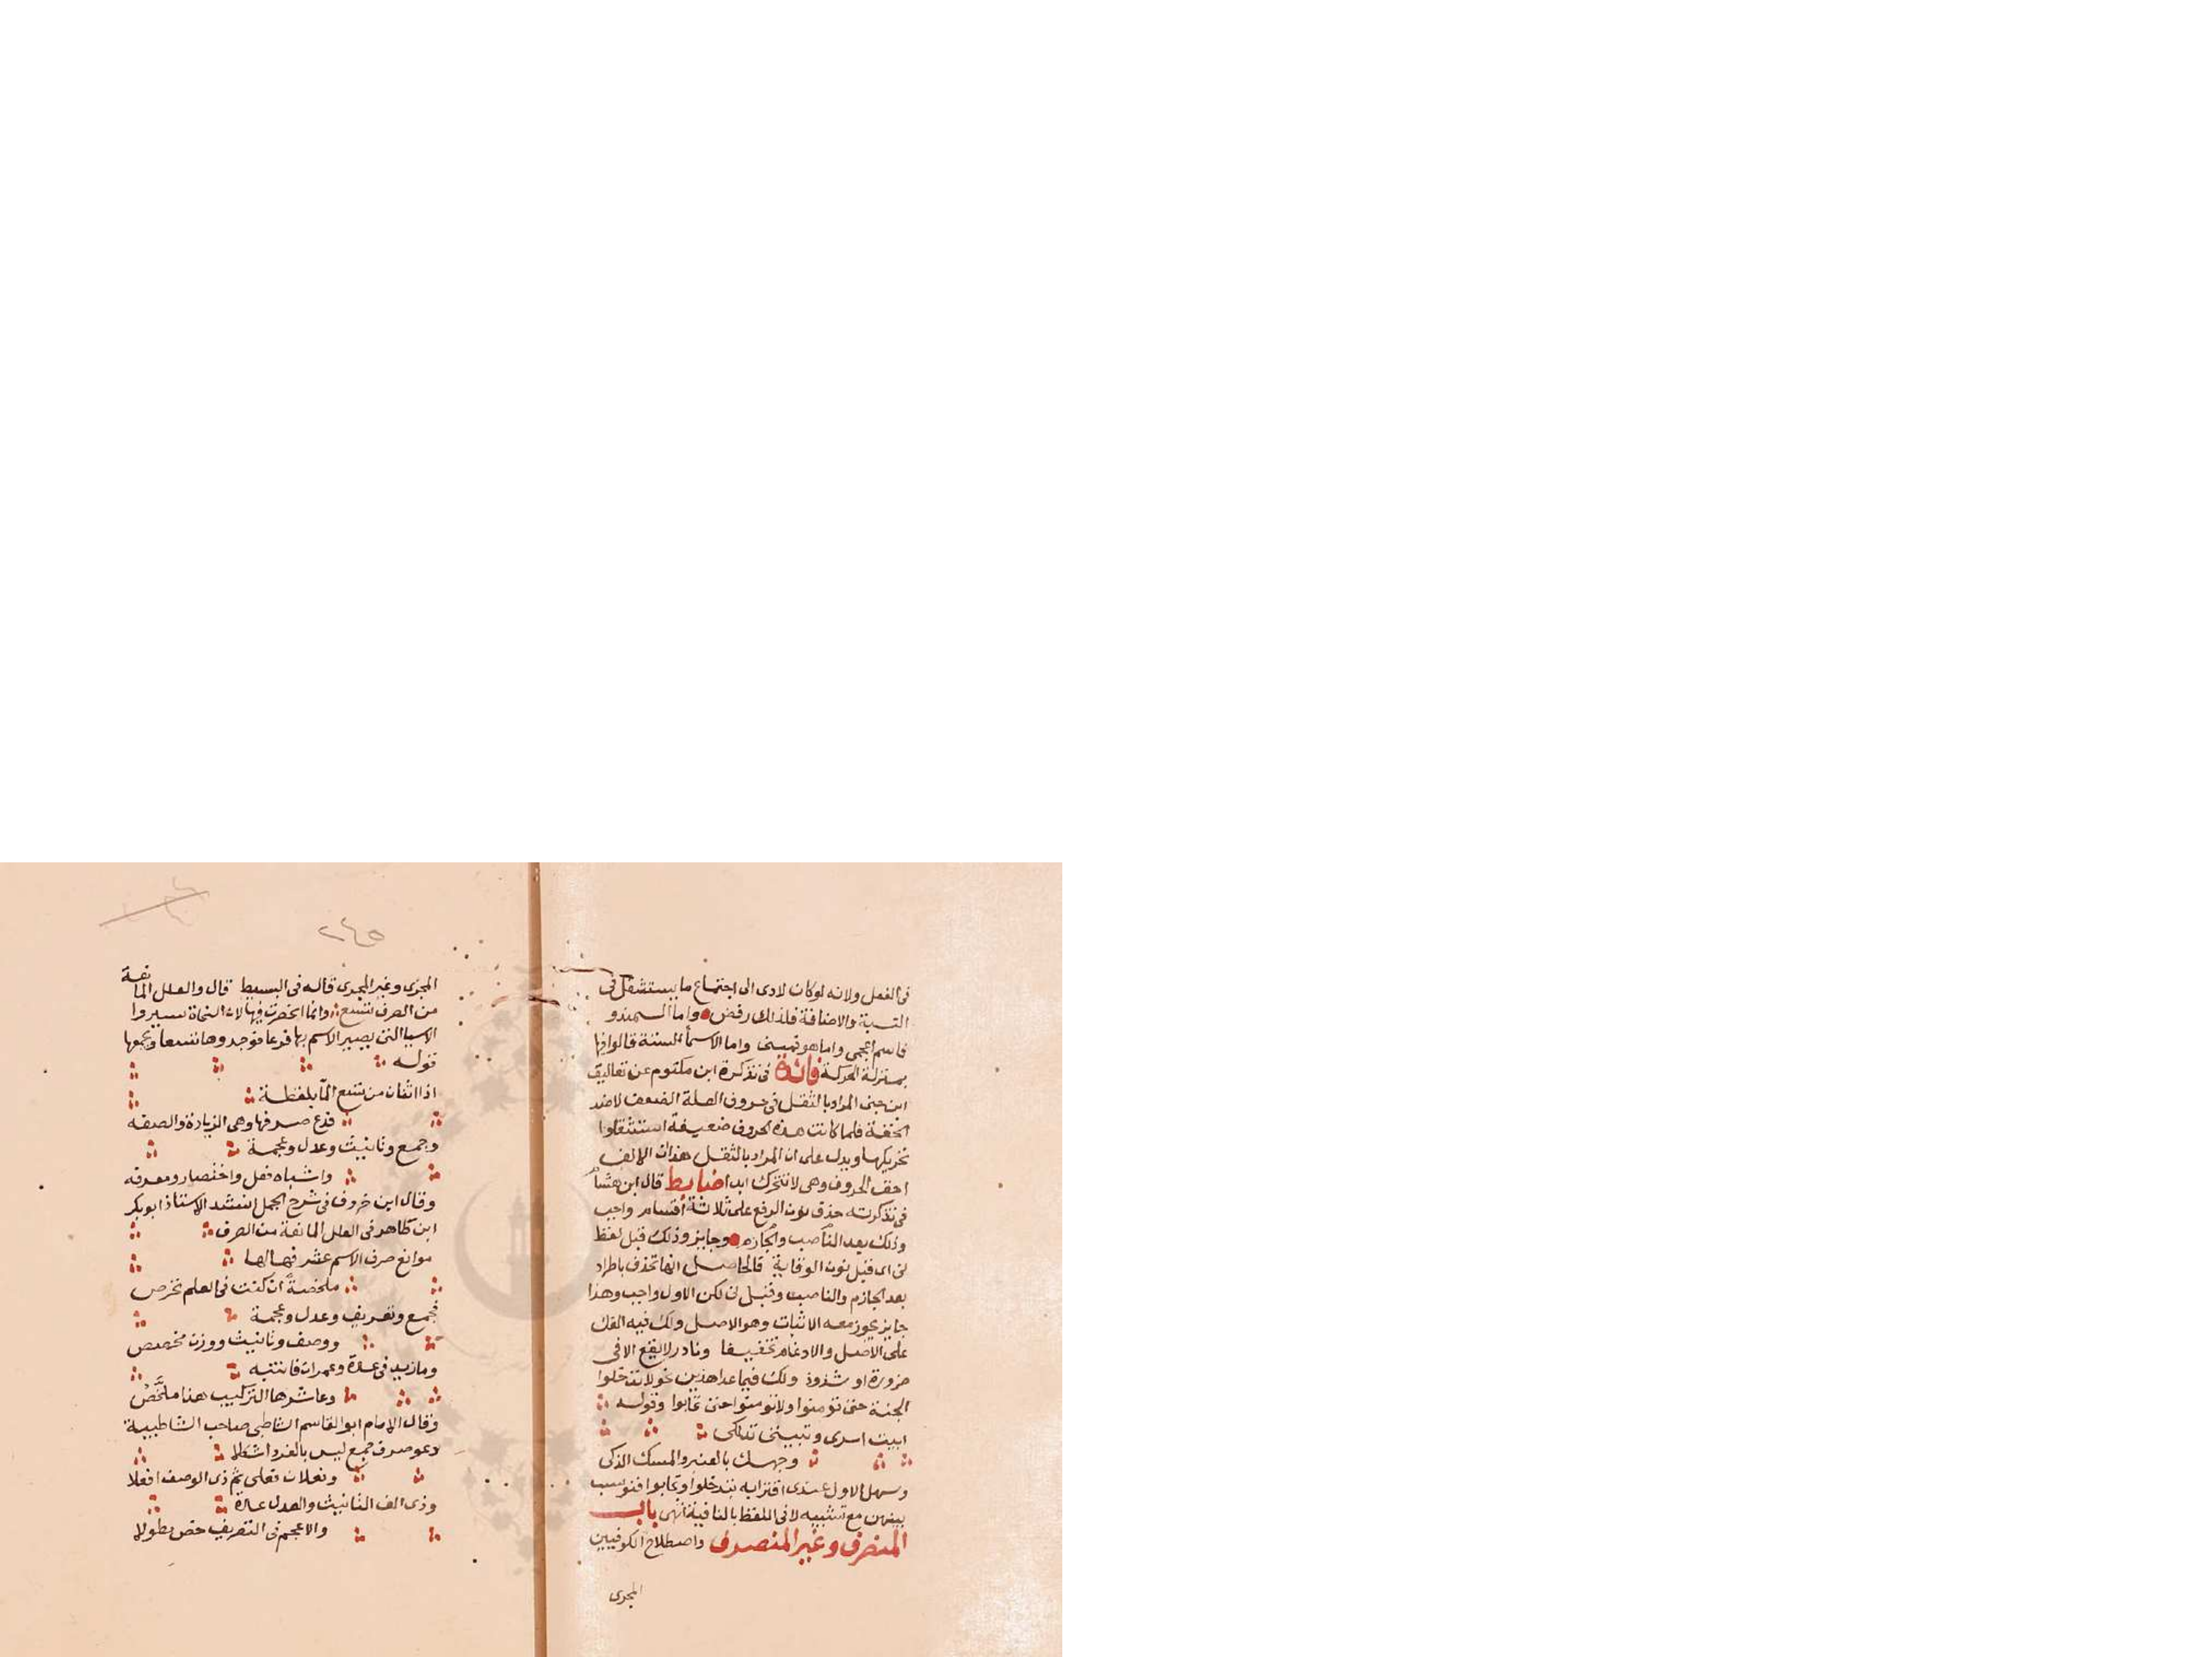 فى الفعل ولانه لوكان لادى الى اجتماع ما يستثقل فى
النسبة والاضافة فلذلك رفض واما السمندو
فاسم اعجمى واما هو فمبنى واما الاسما الستة قالواو فيها
بمنزلة الحركة فائدة فى تذكرة ابن مكتوم عن تعاليق
ابن جنى المراد بالثقل فى حروف العلة الضعف لا ضد
الخفة فلما كانت هذه الحروف ضعيفة استثقلوا
تحريكها ويدل على ان المراد بالثقل هذا ان الالف
اخف الحروف وهى لا تتحرك ابدا ضابط قال ابن هشام
فى تذكرته حذف نون الرفع على ثلاثة أقسام واجب
وذلك بعد الناصب والجازم وجايز وذلك قبل لفظ
نى اى قبل نون الوقاية قالحاصل انها تحذف باطراد
بعد الجازم والناصب وقبل نى لكن الاول واجب وهذا
جايز يجوز معه الاثبات وهو الاصل ولك فيه الفك
على الاصل والادغام تخفيفا ونادر لايقع الا فى
ضرورة او شذوذ ولك فيما عدا هذين نحو لا تدخلوا
الجنة حتى تؤمنوا ولا تومنوا حتى تحابوا وقوله
ابيت اسرى وتبيتى تدلكى
وجهك بالعنبر والمسك الذكى
وسهل الاول عندى اقترانه بتدخلوا وتحابوا فنوسب
بينهن مع تشبيه لا فى اللفظ بالنافية انتهى باب
المنصرف وغير المنصرف واصطلاح الكوفيين
المجرى
٢٤٥
المجرى وغير المجرى قاله فى البسيط قال والعلل المانعة
من الصرف تسع وانما انحصرت فيها لان النحاة سبروا
الاسيا التى يصير الاسم بها فرعا فوجدوها تسعا ويجمعها
قوله
اذا اثنان من تسع ألما بلفظة
فدع صرفها وهى الزيادة والصفه
وجمع وتانيث وعدل وعجمة
واشباه فعل واختصار ومعرفه
وقال ابن خروف فى شرح الجمل انشد الاستاذ ابو بكر
ابن طاهر فى العلل المانعة من الصرف
موانع صرف الاسم عشر فهالها
ملخصة ان كنت فى العلم تحرص
فجمع وتعريف وعدل وعجمة
ووصف وتانيث ووزن مخصص
وما زيد فى عدة وعمران فانتبه
وعاشرها التركيب هذا ملخص
وقال الامام ابو القاسم الشاطبى صاحب الشاطبية
دعو صرف جمع ليس بالفرد اشكلا
وفعلان فعلى ثم ذى الوصف افعلا
وذى الف التانيث والعدل عدة
والاعجم فى التعريف خص مطولا